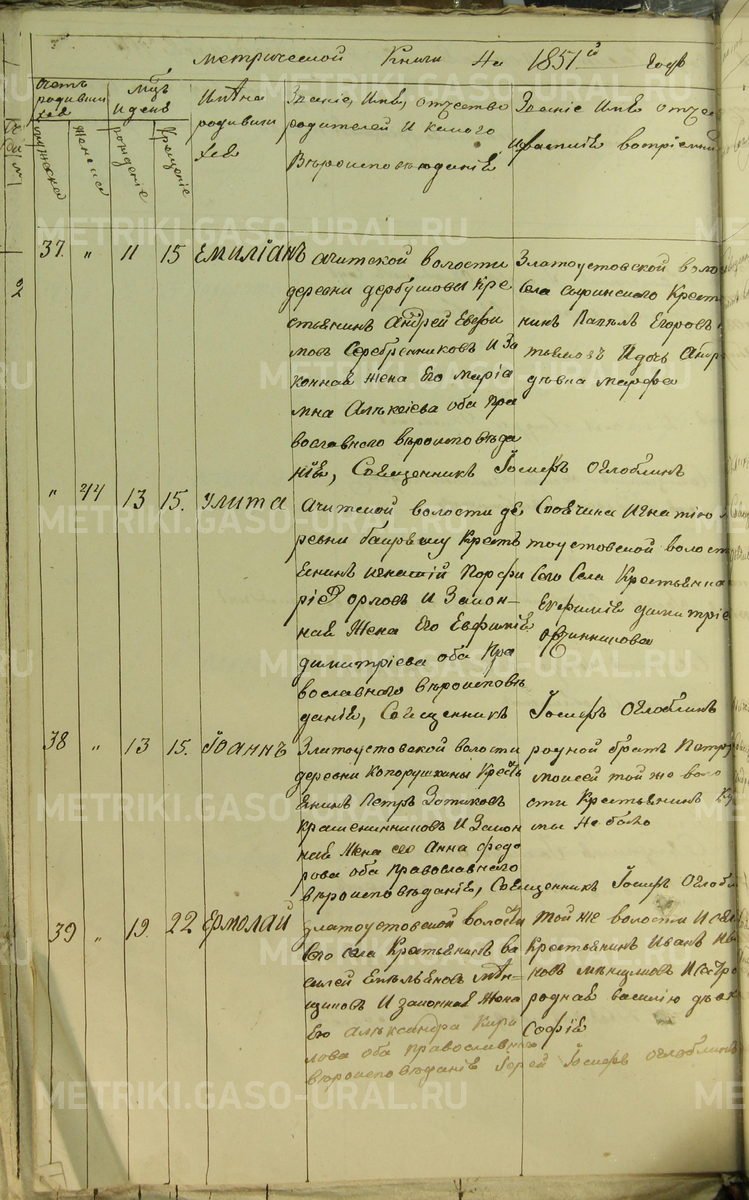 метрической Книги На 1851й годъ
Счетъ родивши хся
мужеска
женска
Мцъ и день
рожденіе
крещеніе
Имѣна родивши хся
Званіе, Имя, отчество родителей И какого Вѣроисповѣданія
Званіе Имя отчес
37. " 11 15 Емиліанъ
Ачитской волости
деревни дербушовы Кре
стьянинъ Андрей Евфи
мовъ Серебренниковъ И За
конная жена Его Марiа
мна Алѣксіева оба Пра
вославнаго вѣроисповѣда
нія, Священникъ Іосифъ Оглоблинъ
Златоустовской воло
Села Сыринскаго Крест
нинъ Павелъ Егоровъ
И дочь Андр
дѣвка Марфа
" 44 13 15. Улита
Ачитской волости де
ревни Крестъ
янинъ Игнатій Порфи
ріевъ Орловъ И Закон-
ная Жена Его Евфимія
димитріева оба Пра
вославнаго вѣроисповѣ
данія, Священникъ Іосифъ Оглоблинъ
Игнатію
тоустовской волост
Сего Села Крестьянка
Евфимія димитріе
Овчинникова
38 " 13 15. Іоаннъ
Златоустовской волости
деревни Копорушкины Кресть
янинъ Петръ Зотиковъ
Крашенинниковъ И Закон
ная Жена его Анна федо
рова оба православнаго
вѣроисповѣданія, Священникъ Іосифъ Оглоб
родной братъ Петру
Моисей той же воло
сти Крестьянинъ
мы Не было
39 " 19. 22 Ермолай
Златоустовской волости
Сего села Крестьянинъ ва
силей Емѣльяновъ Мѣн-
щиковъ И законная Жена
Его Алѣксандра Кири
лова оба православна
вѣроисповѣданія Іерей Іосифъ Оглоблинъ
Той же волости И села
Крестьянинъ Иванъ Ив
новъ Мѣнщиковъ И сестра
родная василію дѣвк
Софія
2
METRIKI.GASO-URAL.RU